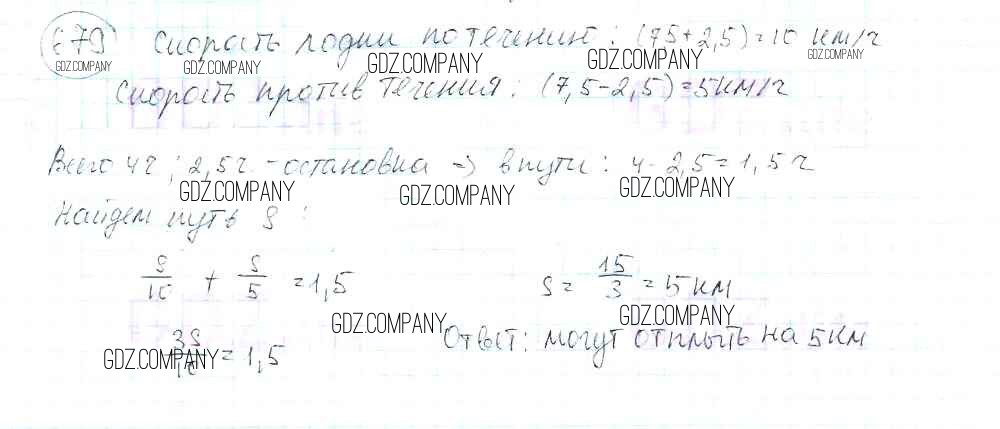 679 Скорость лодки по течению: (7,5+2,5)=10 км/ч
GDZ.COMPANY GDZ.COMPANY GDZ.COMPANY GDZ.COMPANY GDZ.COMPANY
Скорость против течения: (7,5-2,5)=5км/ч
Всего 4ч; 2,5ч. - остановка => в пути: 4-2,5=1,5ч
GDZ.COMPANY GDZ.COMPANY GDZ.COMPANY
Найдем путь S:
S/10 + S/5 = 1,5 S = 15/3 = 5 км
GDZ.COMPANY GDZ.COMPANY
3S/10 = 1,5 Ответ: могут отплыть на 5км
GDZ.COMPANY